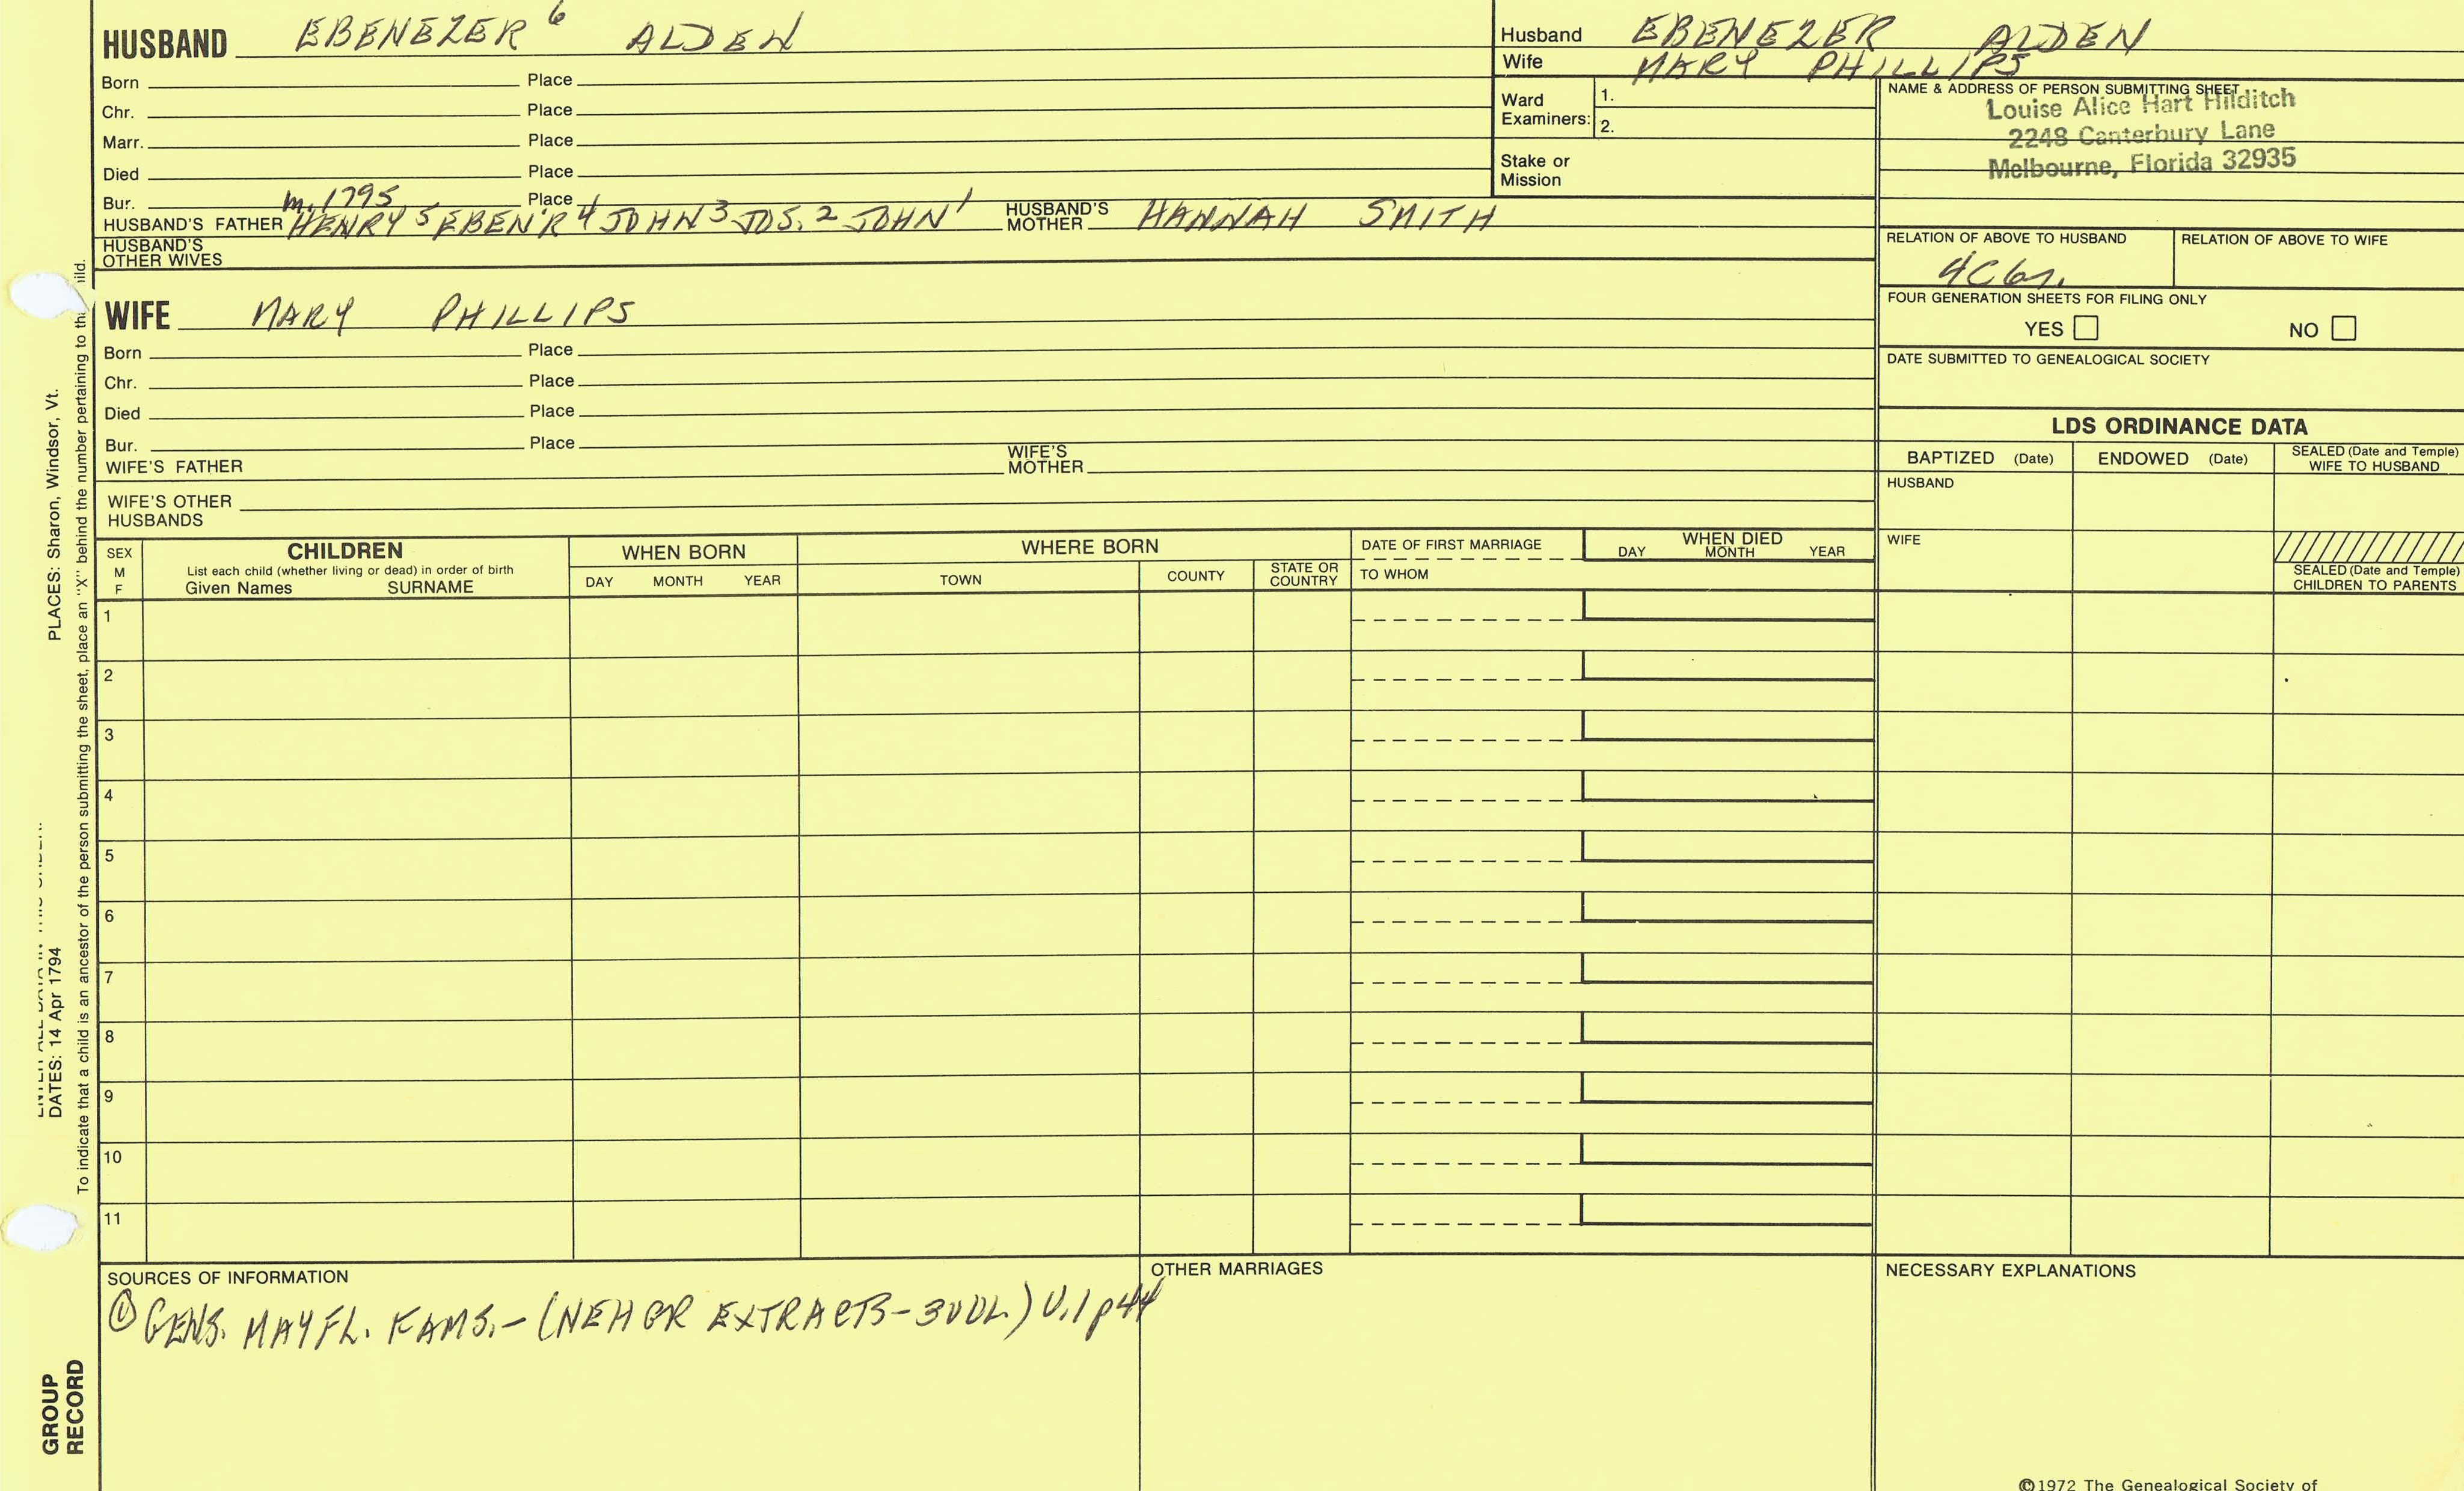 HUSBAND EBENEZER 6 ALDEN
Born Place
Chr. Place
Marr. Place
Died Place
Bur. m. 1795 Place
HUSBAND'S FATHER HENRY 5 EBEN'R 4 JOHN 3 JOS. 2 JOHN 1 HUSBAND'S MOTHER HANNAH SMITH
HUSBAND'S OTHER WIVES
WIFE MARY PHILLIPS
Born Place
Chr. Place
Died Place
Bur. Place
WIFE'S FATHER WIFE'S MOTHER
WIFE'S OTHER HUSBANDS
Husband EBENEZER ALDEN
Wife MARY PHILLIPS
Ward Examiners: 1.
2.
Stake or Mission
NAME & ADDRESS OF PERSON SUBMITTING SHEET
Louise Alice Hart Hilditch
2248 Canterbury Lane
Melbourne, Florida 32935
RELATION OF ABOVE TO HUSBAND RELATION OF ABOVE TO WIFE
4C6r.
FOUR GENERATION SHEETS FOR FILING ONLY
YES NO
DATE SUBMITTED TO GENEALOGICAL SOCIETY
LDS ORDINANCE DATA
BAPTIZED (Date) ENDOWED (Date) SEALED (Date and Temple) WIFE TO HUSBAND
HUSBAND
WIFE
SEALED (Date and Temple) CHILDREN TO PARENTS
SEX M F
CHILDREN
List each child (whether living or dead) in order of birth
Given Names SURNAME
WHEN BORN
DAY MONTH YEAR
WHERE BORN
TOWN COUNTY STATE OR COUNTRY
DATE OF FIRST MARRIAGE
TO WHOM
WHEN DIED
DAY MONTH YEAR
1
2
3
4
5
6
7
8
9
10
11
SOURCES OF INFORMATION
① GENS. MAYFL. FAMS. - (NEHGR EXTRACTS - 3 VOL.) V.1 p44
OTHER MARRIAGES
NECESSARY EXPLANATIONS
©1972 The Genealogical Society of
PLACES: Sharon, Windsor, Vt.
DATES: 14 Apr 1794
To indicate that a child is an ancestor of the person submitting the sheet, place an "X" behind the number pertaining to
GROUP
RECORD